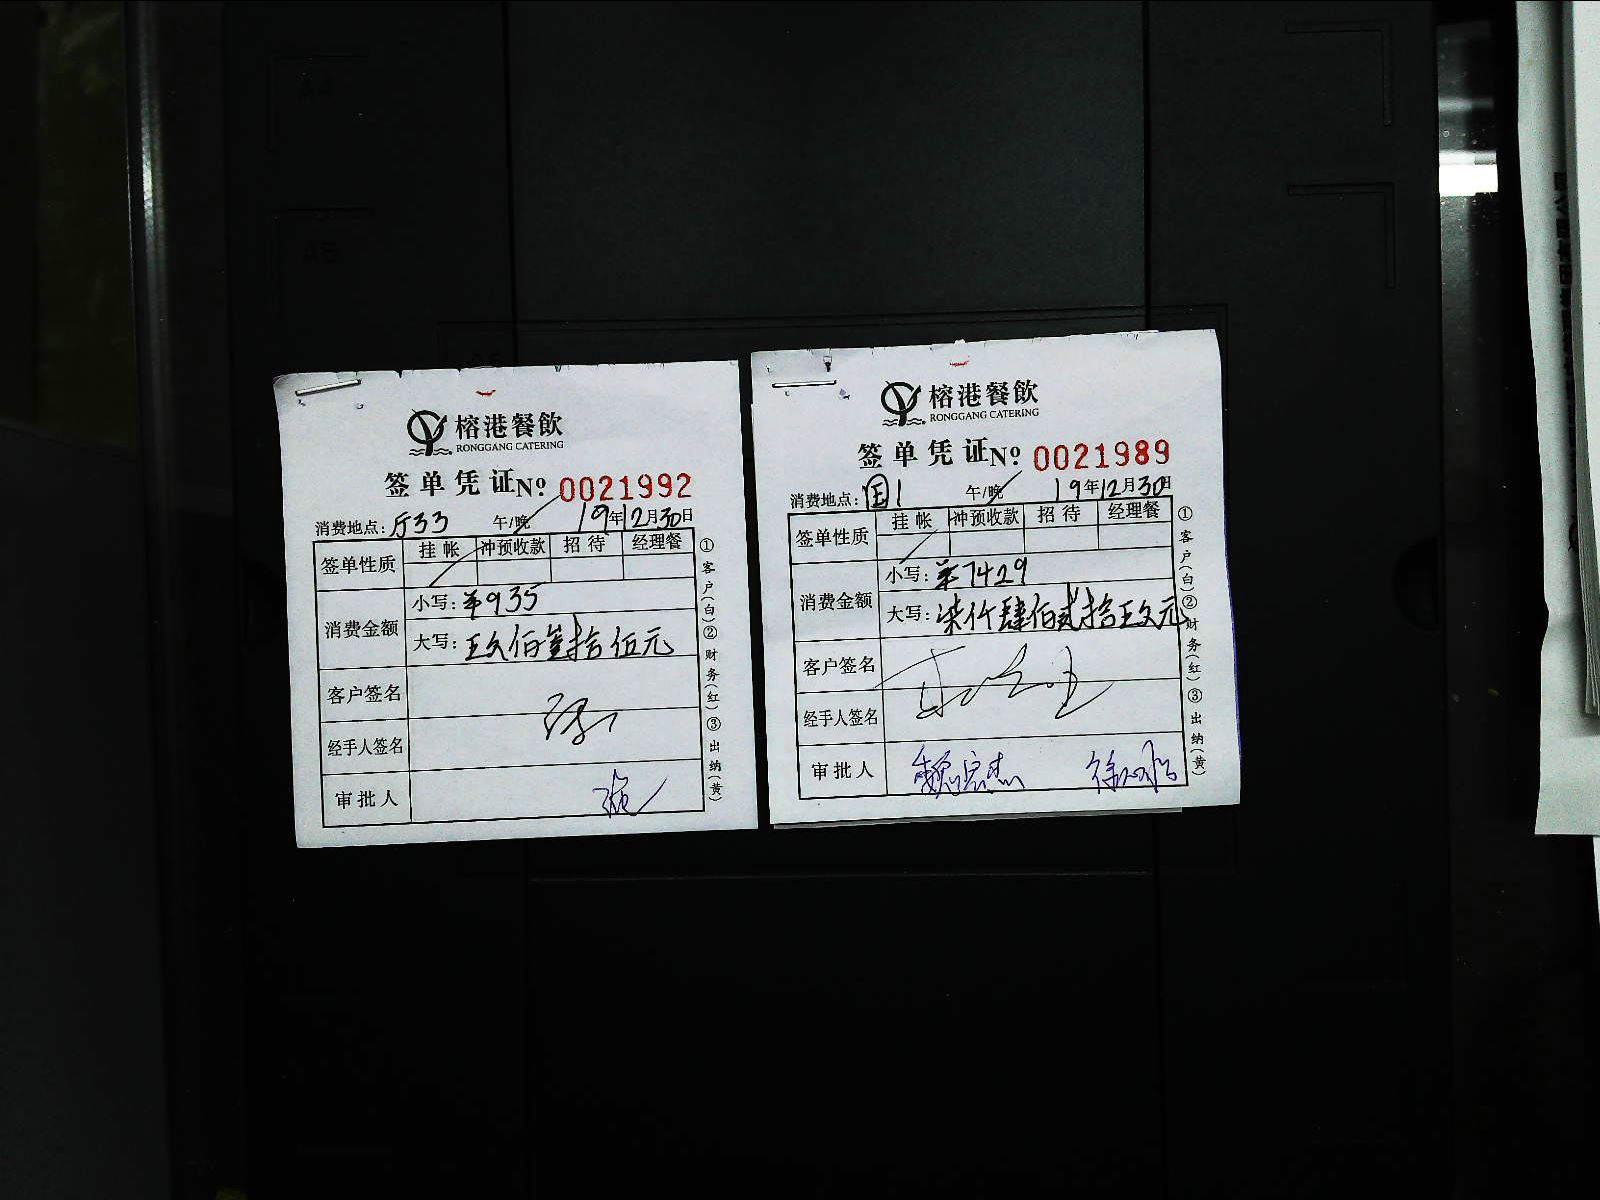 榕港餐飲
RONGGANG CATERING
签单凭证 № 0021992
消费地点: 厅33 午/晚 19年12月30日
签单性质 挂帐 冲预收款 招待 经理餐
消费金额 小写: ¥935
大写: 玖佰叁拾伍元
客户签名
经手人签名
审批人
①客户(白)②财务(红)③出纳(黄)
榕港餐飲
RONGGANG CATERING
签单凭证 № 0021989
消费地点: 国1 午/晚 19年12月30日
签单性质 挂帐 冲预收款 招待 经理餐
消费金额 小写: ¥7429
大写: 柒仟肆佰贰拾玖元
客户签名
经手人签名
审批人
①客户(白)②财务(红)③出纳(黄)